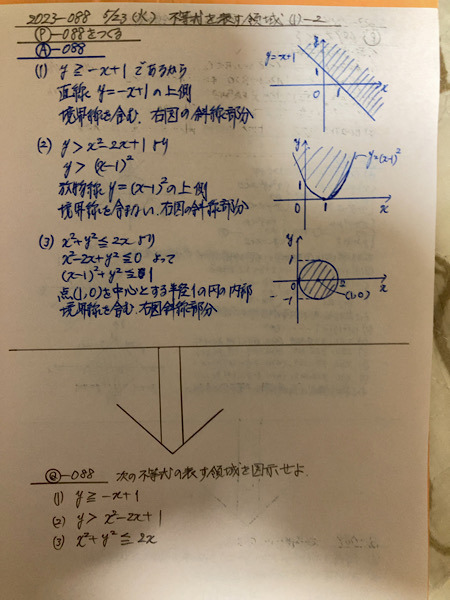 2023-088 5/23(火) 不等式を表す領域(1)-2
Ⓟ-088をつくる
Ⓐ-088
(1) y≧-x+1 であるから
直線 y=-x+1 の上側
境界線を含む、右図の斜線部分
y=-x+1
y
1
0
1
x
(2) y>x²-2x+1 より
y>(x-1)²
放物線 y=(x-1)² の上側
境界線を含まない、右図の斜線部分
y
y=(x-1)²
1
0
1
x
(3) x²+y²≦2x より
x²-2x+y²≦0 よって
(x-1)²+y²≦1
点(1,0)を中心とする半径1の円の内部
境界線を含む、右図斜線部分
y
1
0
2
x
-1
(1,0)
Ⓠ-088 次の不等式の表す領域を図示せよ.
(1) y≧-x+1
(2) y>x²-2x+1
(3) x²+y²≦2x